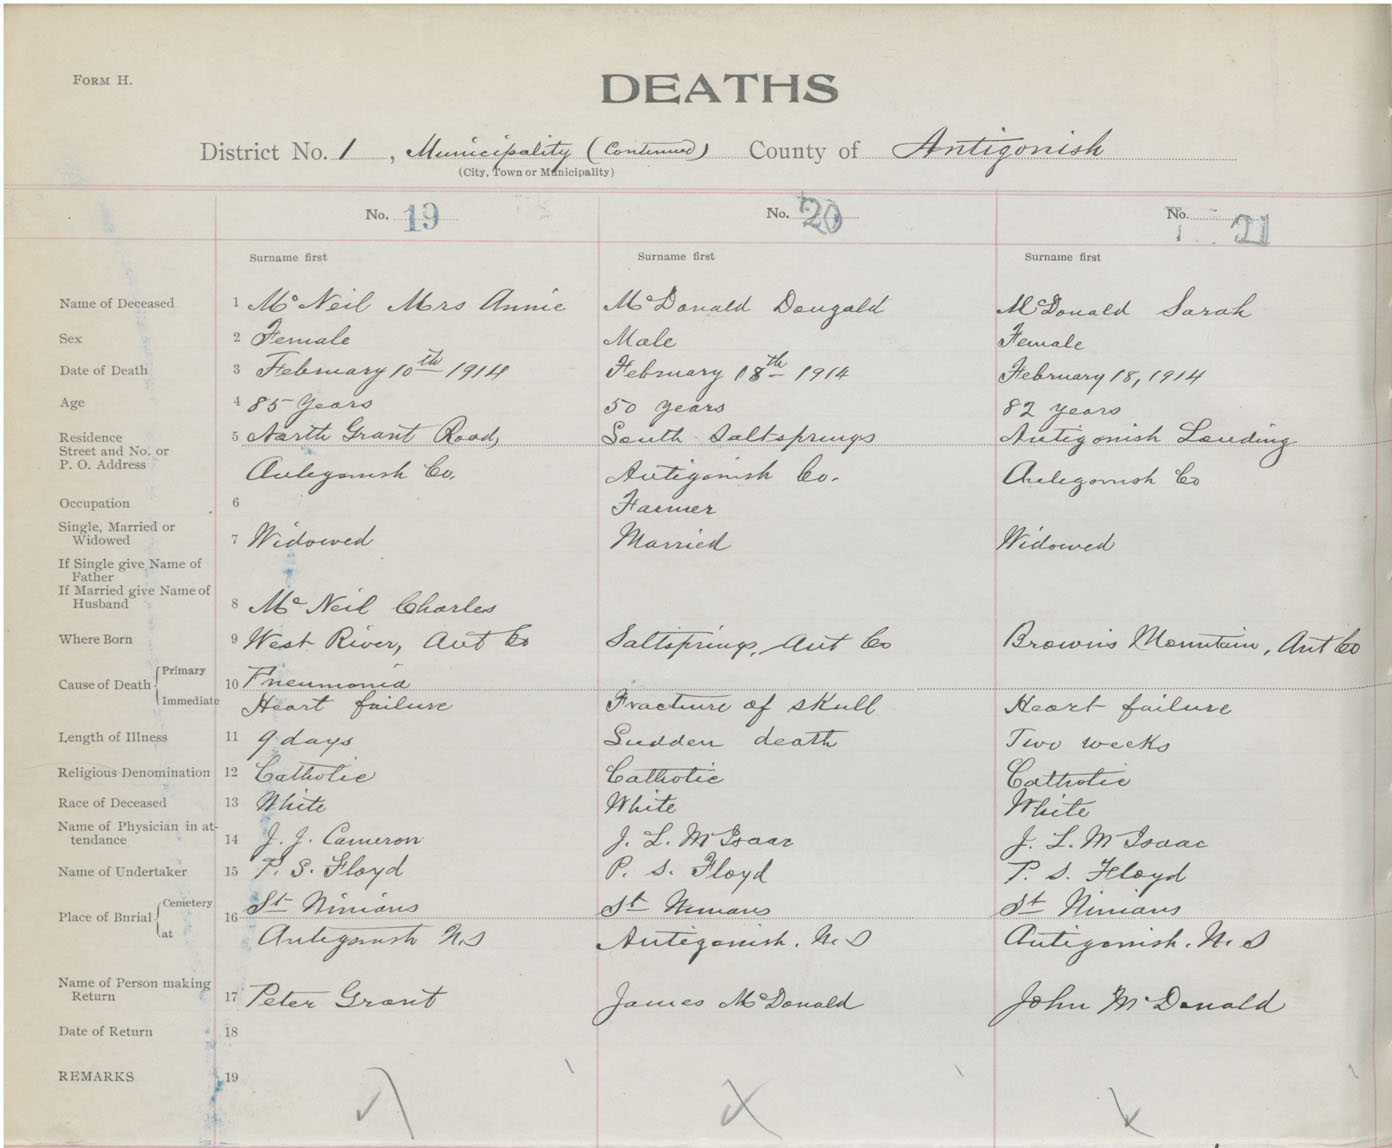 FORM H.
DEATHS
District No. 1, Municipality (Continued) County of Antigonish
(City, Town or Municipality)
No. 19 No. 20 No. 21
Surname first Surname first Surname first
Name of Deceased 1 McNeil Mrs Annie McDonald Dougald McDonald Sarah
Sex 2 Female Male Female
Date of Death 3 February 10th 1914 February 18th 1914 February 18, 1914
Age 4 85 Years 50 years 82 years
Residence 5 North Grant Road, South Saltsprings Antigonish Landing
Street and No. or
P. O. Address Antigonish Co. Antigonish Co. Antigonish Co
Occupation 6 Farmer
Single, Married or
Widowed 7 Widowed Married Widowed
If Single give Name of
Father
If Married give Name of
Husband 8 McNeil Charles
Where Born 9 West River, Ant Co Saltsprings, Ant Co Browns Mountain, Ant Co
Cause of Death Primary 10 Pneumonia
Immediate Heart failure Fracture of skull Heart failure
Length of Illness 11 9 days Sudden death Two weeks
Religious Denomination 12 Catholic Catholic Catholic
Race of Deceased 13 White White White
Name of Physician in at-
tendance 14 J. J. Cameron J. L. McIsaac J. L. McIsaac
Name of Undertaker 15 P. S. Floyd P. S. Floyd P. S. Floyd
Place of Burial Cemetery 16 St Ninians St Ninians St Ninians
at Antigonish N.S Antigonish. N.S Antigonish. N.S
Name of Person making
Return 17 Peter Grant James McDonald John McDonald
Date of Return 18
REMARKS 19